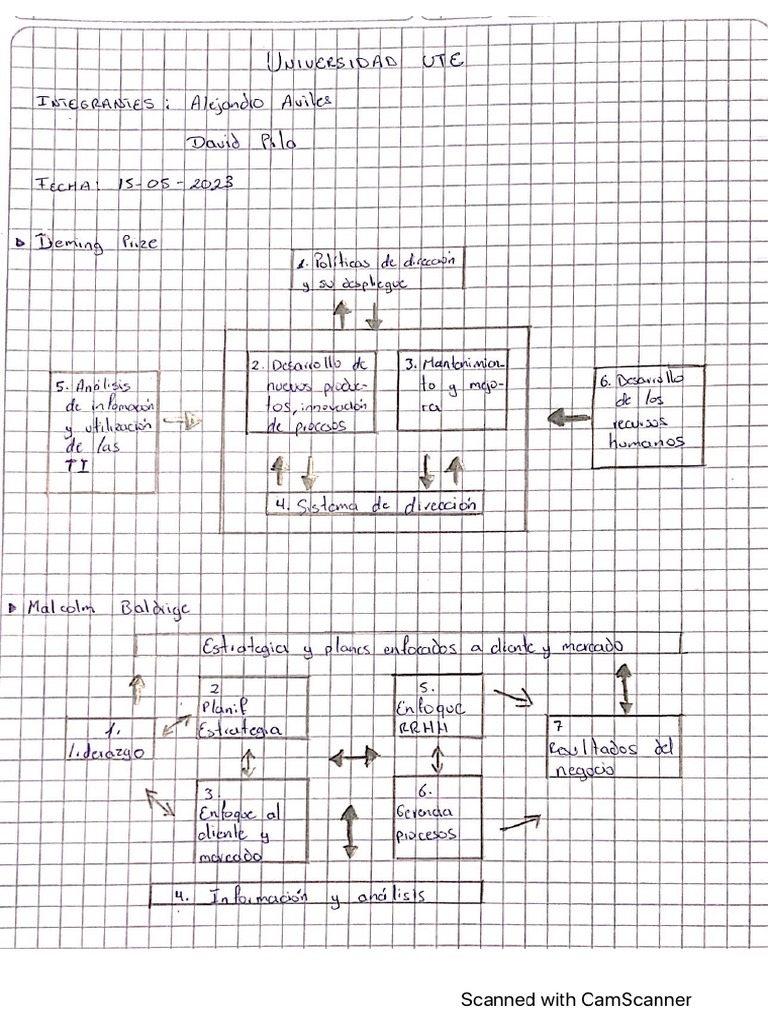 UNIVERSIDAD UTE
INTEGRANTES: Alejandro Aviles
David Pila
FECHA: 15-05-2023
Deming Prize
1. Políticas de dirección
y su despliegue
2. Desarrollo de
nuevos produc-
tos, innovación
de procesos
3. Mantenimien-
to y mejo-
ra
4. Sistema de dirección
5. Análisis
de información
y utilización
de las
TI
6. Desarrollo
de los
recursos
humanos
Malcolm Baldrige
Estrategia y planes enfocados a cliente y mercado
1.
Liderazgo
2
Planif
Estrategia
3.
Enfoque al
cliente y
mercado
4. Información y análisis
5.
Enfoque
RRHH
6.
Gerencia
procesos
7
Resultados del
negocio
Scanned with CamScanner